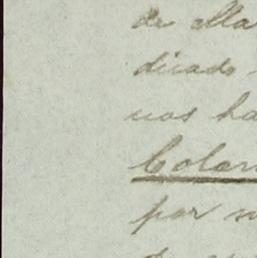 de ella
dicado
nos ha
Colon
por m